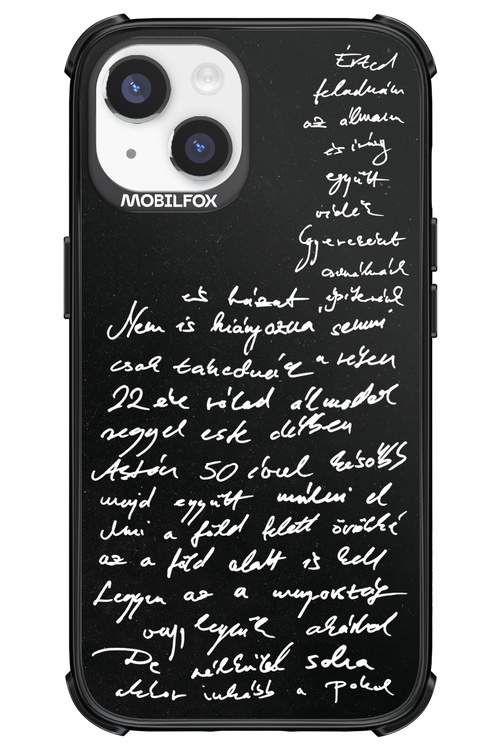 MOBILFOX
Érted
feladnám
az álmom
és így
együtt
vidék
Gyerekeket
csinálnánk
és házat építenénk
Nem is hiányozna semmi
csak takarodnánk a
22 éve rólad álmodok
reggel este délben
Aztán 50 évvel később
majd együtt múlni el
Ami a föld felett örökké
az a föld alatt is kell
Legyen az a mennyország
vagy legyünk akárhol
De nélküled soha
akkor inkább a pokol